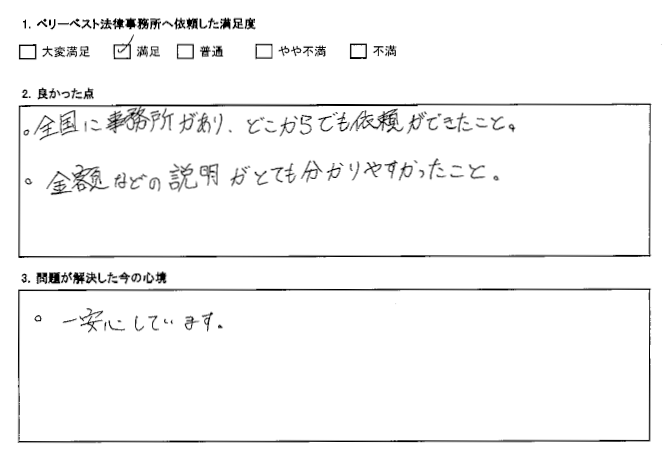 1. ベリーベスト法律事務所へ依頼した満足度
□ 大変満足 ☑ 満足 □ 普通 □ やや不満 □ 不満
2. 良かった点
。全国に事務所があり、どこからでも依頼ができたこと。
。金額などの説明がとても分かりやすかったこと。
3. 問題が解決した今の心境
。一安心しています。